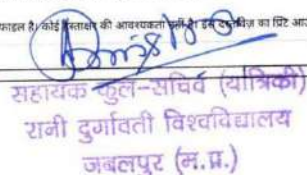 फाइल है। कोई हस्ताक्षर की आवश्यकता नहीं है। इस दस्तावेज़ का प्रिंट आउ
सहायक कुल-सचिव (यांत्रिकी)
रानी दुर्गावती विश्वविद्यालय
जबलपुर (म.प्र.)